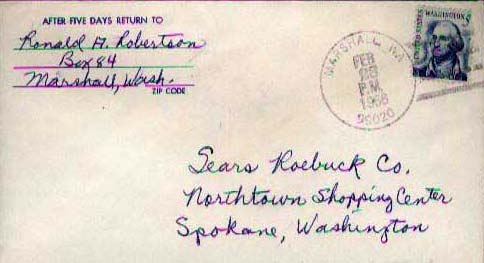 AFTER FIVE DAYS RETURN TO
Ronald A. Robertson
Box 84
Marshall, Wash.
ZIP CODE
MARSHALL, WA
FEB
28
P.M.
1968
99020
UNITED STATES
WASHINGTON 5
Sears Roebuck Co.
Northtown Shopping Center
Spokane, Washington